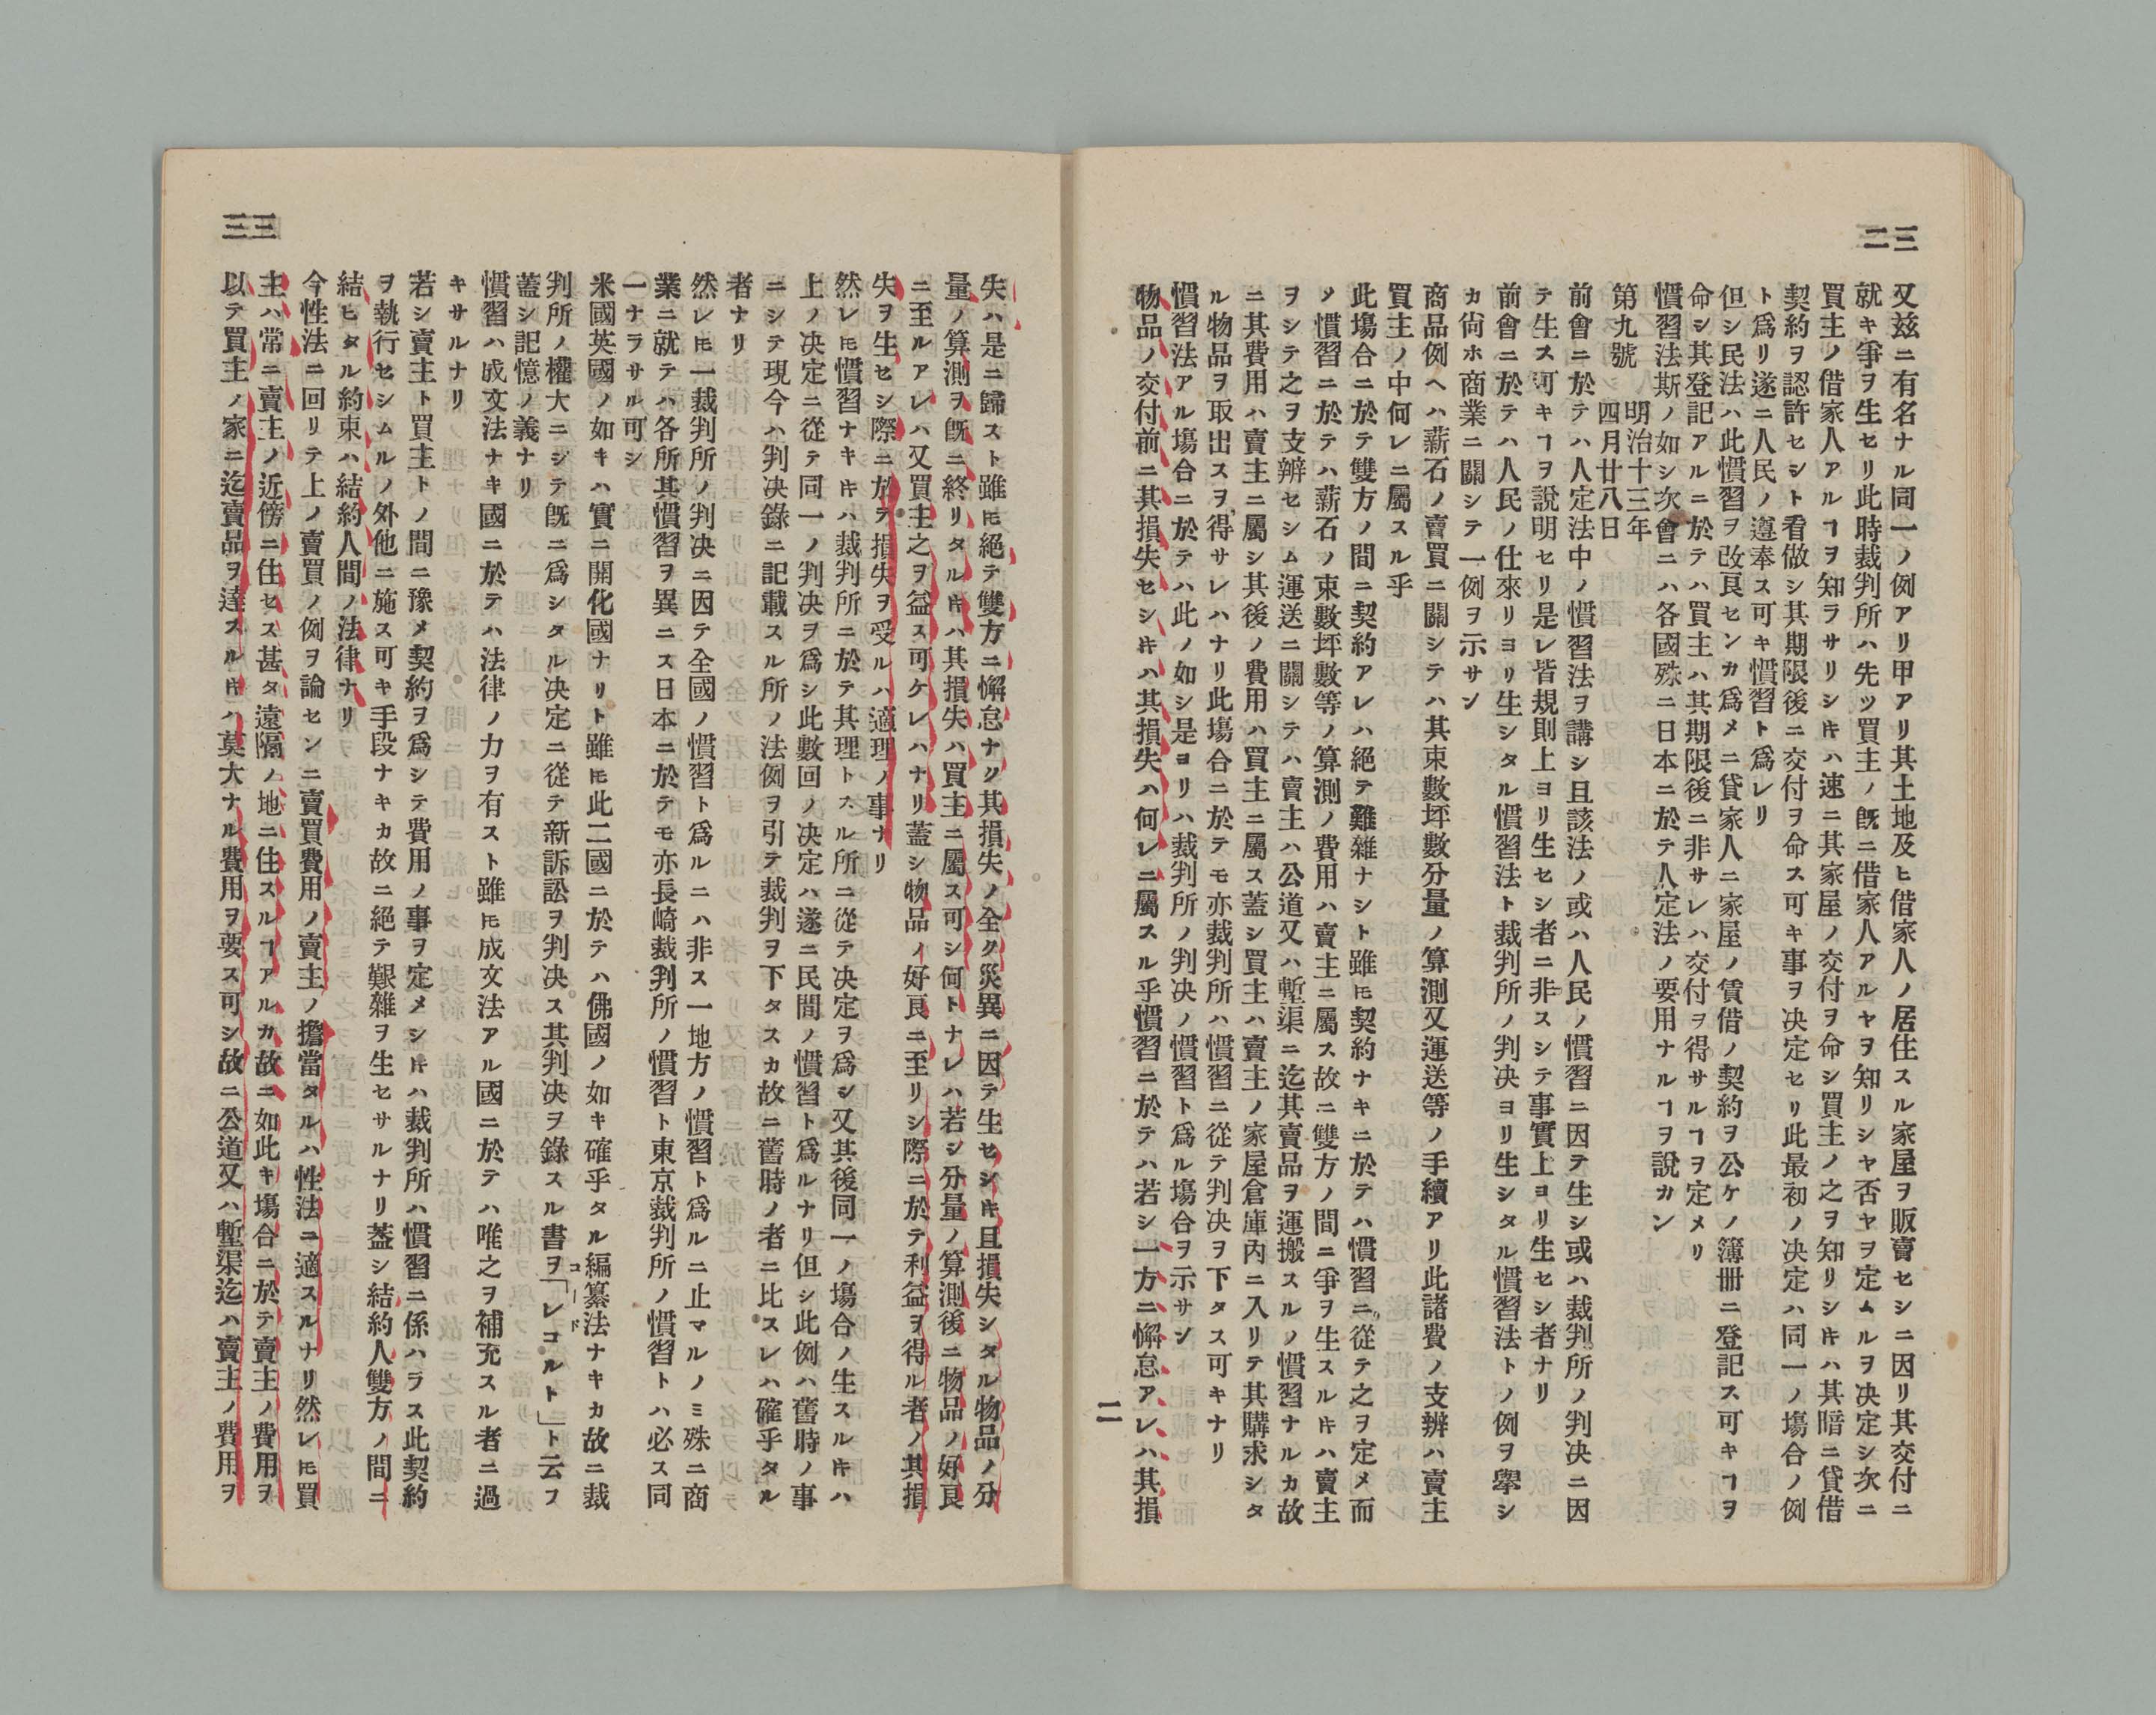 三二
又茲ニ有名ナル同一ノ例アリ甲アリ其土地及ヒ借家人ノ居住スル家屋ヲ販賣セシニ因リ其交付ニ
就キ爭ヲ生セリ此時裁判所ハ先ツ買主ノ旣ニ借家人アルヤヲ知リシヤ否ヤヲ定ムルヲ决定シ次ニ
買主ノ借家人アルヿヲ知ラサリシキハ速ニ其家屋ノ交付ヲ命シ買主ノ之ヲ知リシキハ其暗ニ貸借
契約ヲ認許セシト看做シ其期限後ニ交付ヲ命ス可キ事ヲ决定セリ此最初ノ决定ハ同一ノ塲合ノ例
ト爲リ遂ニ人民ノ遵奉ス可キ慣習ト爲レリ
但シ民法ハ此慣習ヲ改良センカ爲メニ貸家人ニ家屋ノ賃借ノ契約ヲ公ケノ簿冊ニ登記ス可キヿヲ
命シ其登記アルニ於テハ買主ハ其期限後ニ非サレハ交付ヲ得サルヿヲ定メリ
慣習法斯ノ如シ次會ニハ各國殊ニ日本ニ於テ人定法ノ要用ナルヿヲ說カン
第九號
明治十三年
四月廿八日
前會ニ於テハ人定法中ノ慣習法ヲ講シ且該法ノ或ハ人民ノ慣習ニ因テ生シ或ハ裁判所ノ判决ニ因
テ生ス可キヿヲ說明セリ是レ皆規則上ヨリ生セシ者ニ非スシテ事實上ヨリ生セシ者ナリ
前會ニ於テハ人民ノ仕來リヨリ生シタル慣習法ト裁判所ノ判决ヨリ生シタル慣習法トノ例ヲ擧シ
カ尙ホ商業ニ關シテ一例ヲ示サン
商品例ヘハ薪石ノ賣買ニ關シテハ其束數坪數分量ノ算測又運送等ノ手續アリ此諸費ノ支辨ハ賣主
買主ノ中何レニ屬スル乎
此塲合ニ於テ雙方ノ間ニ契約アレハ絕テ難雜ナシト雖ヒ契約ナキニ於テハ慣習ニ從テ之ヲ定メ而
ノ慣習ニ於テハ薪石ノ束數坪數等ノ算測ノ費用ハ賣主ニ屬ス故ニ雙方ノ間ニ爭ヲ生スルキハ賣主
ヲシテ之ヲ支辨セシム運送ニ關シテハ賣主ハ公道又ハ塹渠ニ迄其賣品ヲ運搬スルノ慣習ナルカ故
ニ其費用ハ賣主ニ屬シ其後ノ費用ハ買主ニ屬ス蓋シ買主ハ賣主ノ家屋倉庫內ニ入リテ其購求シタ
ル物品ヲ取出スヲ得サレハナリ此塲合ニ於テモ亦裁判所ハ慣習ニ從テ判决ヲ下タス可キナリ
慣習法アル塲合ニ於テハ此ノ如シ是ヨリハ裁判所ノ判决ノ慣習ト爲ル塲合ヲ示サン
物品ノ交付前ニ其損失セシキハ其損失ハ何レニ屬スル乎慣習ニ於テハ若シ一方ニ懈怠アレハ其損
二
三三
失ハ是ニ歸スト雖ヒ絕テ雙方ニ懈怠ナク其損失ノ全ク災異ニ因テ生セシキ且損失シタル物品ノ分
量ノ算測ヲ旣ニ終リタルキハ其損失ハ買主ニ屬ス可シ何トナレハ若シ分量ノ算測後ニ物品ノ好良
ニ至ルアレハ又買主之ヲ益ス可ケレハナリ蓋シ物品ノ好良ニ至リシ際ニ於テ利益ヲ得ル者ノ其損
失ヲ生セシ際ニ於テ損失ヲ受ルハ適理ノ事ナリ
然レヒ慣習ナキキハ裁判所ニ於テ其理トスル所ニ從テ决定ヲ爲シ又其後同一ノ塲合ノ生スルキハ
上ノ决定ニ從テ同一ノ判决ヲ爲シ此數回ノ决定ハ遂ニ民間ノ慣習ト爲ルナリ但シ此例ハ舊時ノ事
ニシテ現今ハ判决錄ニ記載スル所ノ法例ヲ引テ裁判ヲ下タスカ故ニ舊時ノ者ニ比スレハ確乎タル
者ナリ
然レヒ一裁判所ノ判决ニ因テ全國ノ慣習ト爲ルニハ非ス一地方ノ慣習ト爲ルニ止マルノミ殊ニ商
業ニ就テハ各所其慣習ヲ異ニス日本ニ於テモ亦長崎裁判所ノ慣習ト東京裁判所ノ慣習トハ必ス同
一ナラサル可シ
米國英國ノ如キハ實ニ開化國ナリト雖ヒ此二國ニ於テハ佛國ノ如キ確乎タル編纂法コードナキカ故ニ裁
判所ノ權大ニシテ旣ニ爲シタル决定ニ從テ新訴訟ヲ判决ス其判决ヲ錄スル書ヲ「レコルト」ト云フ
蓋シ記憶ノ義ナリ
慣習ハ成文法ナキ國ニ於テハ法律ノ力ヲ有スト雖ヒ成文法アル國ニ於テハ唯之ヲ補充スル者ニ過
キサルナリ
若シ賣主ト買主トノ間ニ豫メ契約ヲ爲シテ費用ノ事ヲ定メシキハ裁判所ハ慣習ニ係ハラス此契約
ヲ執行セシムルノ外他ニ施ス可キ手段ナキカ故ニ絕テ艱雜ヲ生セサルナリ蓋シ結約人雙方ノ間ニ
結ヒタル約束ハ結約人間ノ法律ナリ
今性法ニ回リテ上ノ賣買ノ例ヲ論センニ賣買費用ノ賣主ノ擔當タルハ性法ニ適スルナリ然レヒ買
主ハ常ニ賣主ノ近傍ニ住セス甚タ遠隔ノ地ニ住スルヿアルカ故ニ如此キ塲合ニ於テ賣主ノ費用ヲ
以テ買主ノ家ニ迄賣品ヲ達スルキハ莫大ナル費用ヲ要ス可シ故ニ公道又ハ塹渠迄ハ賣主ノ費用ヲ